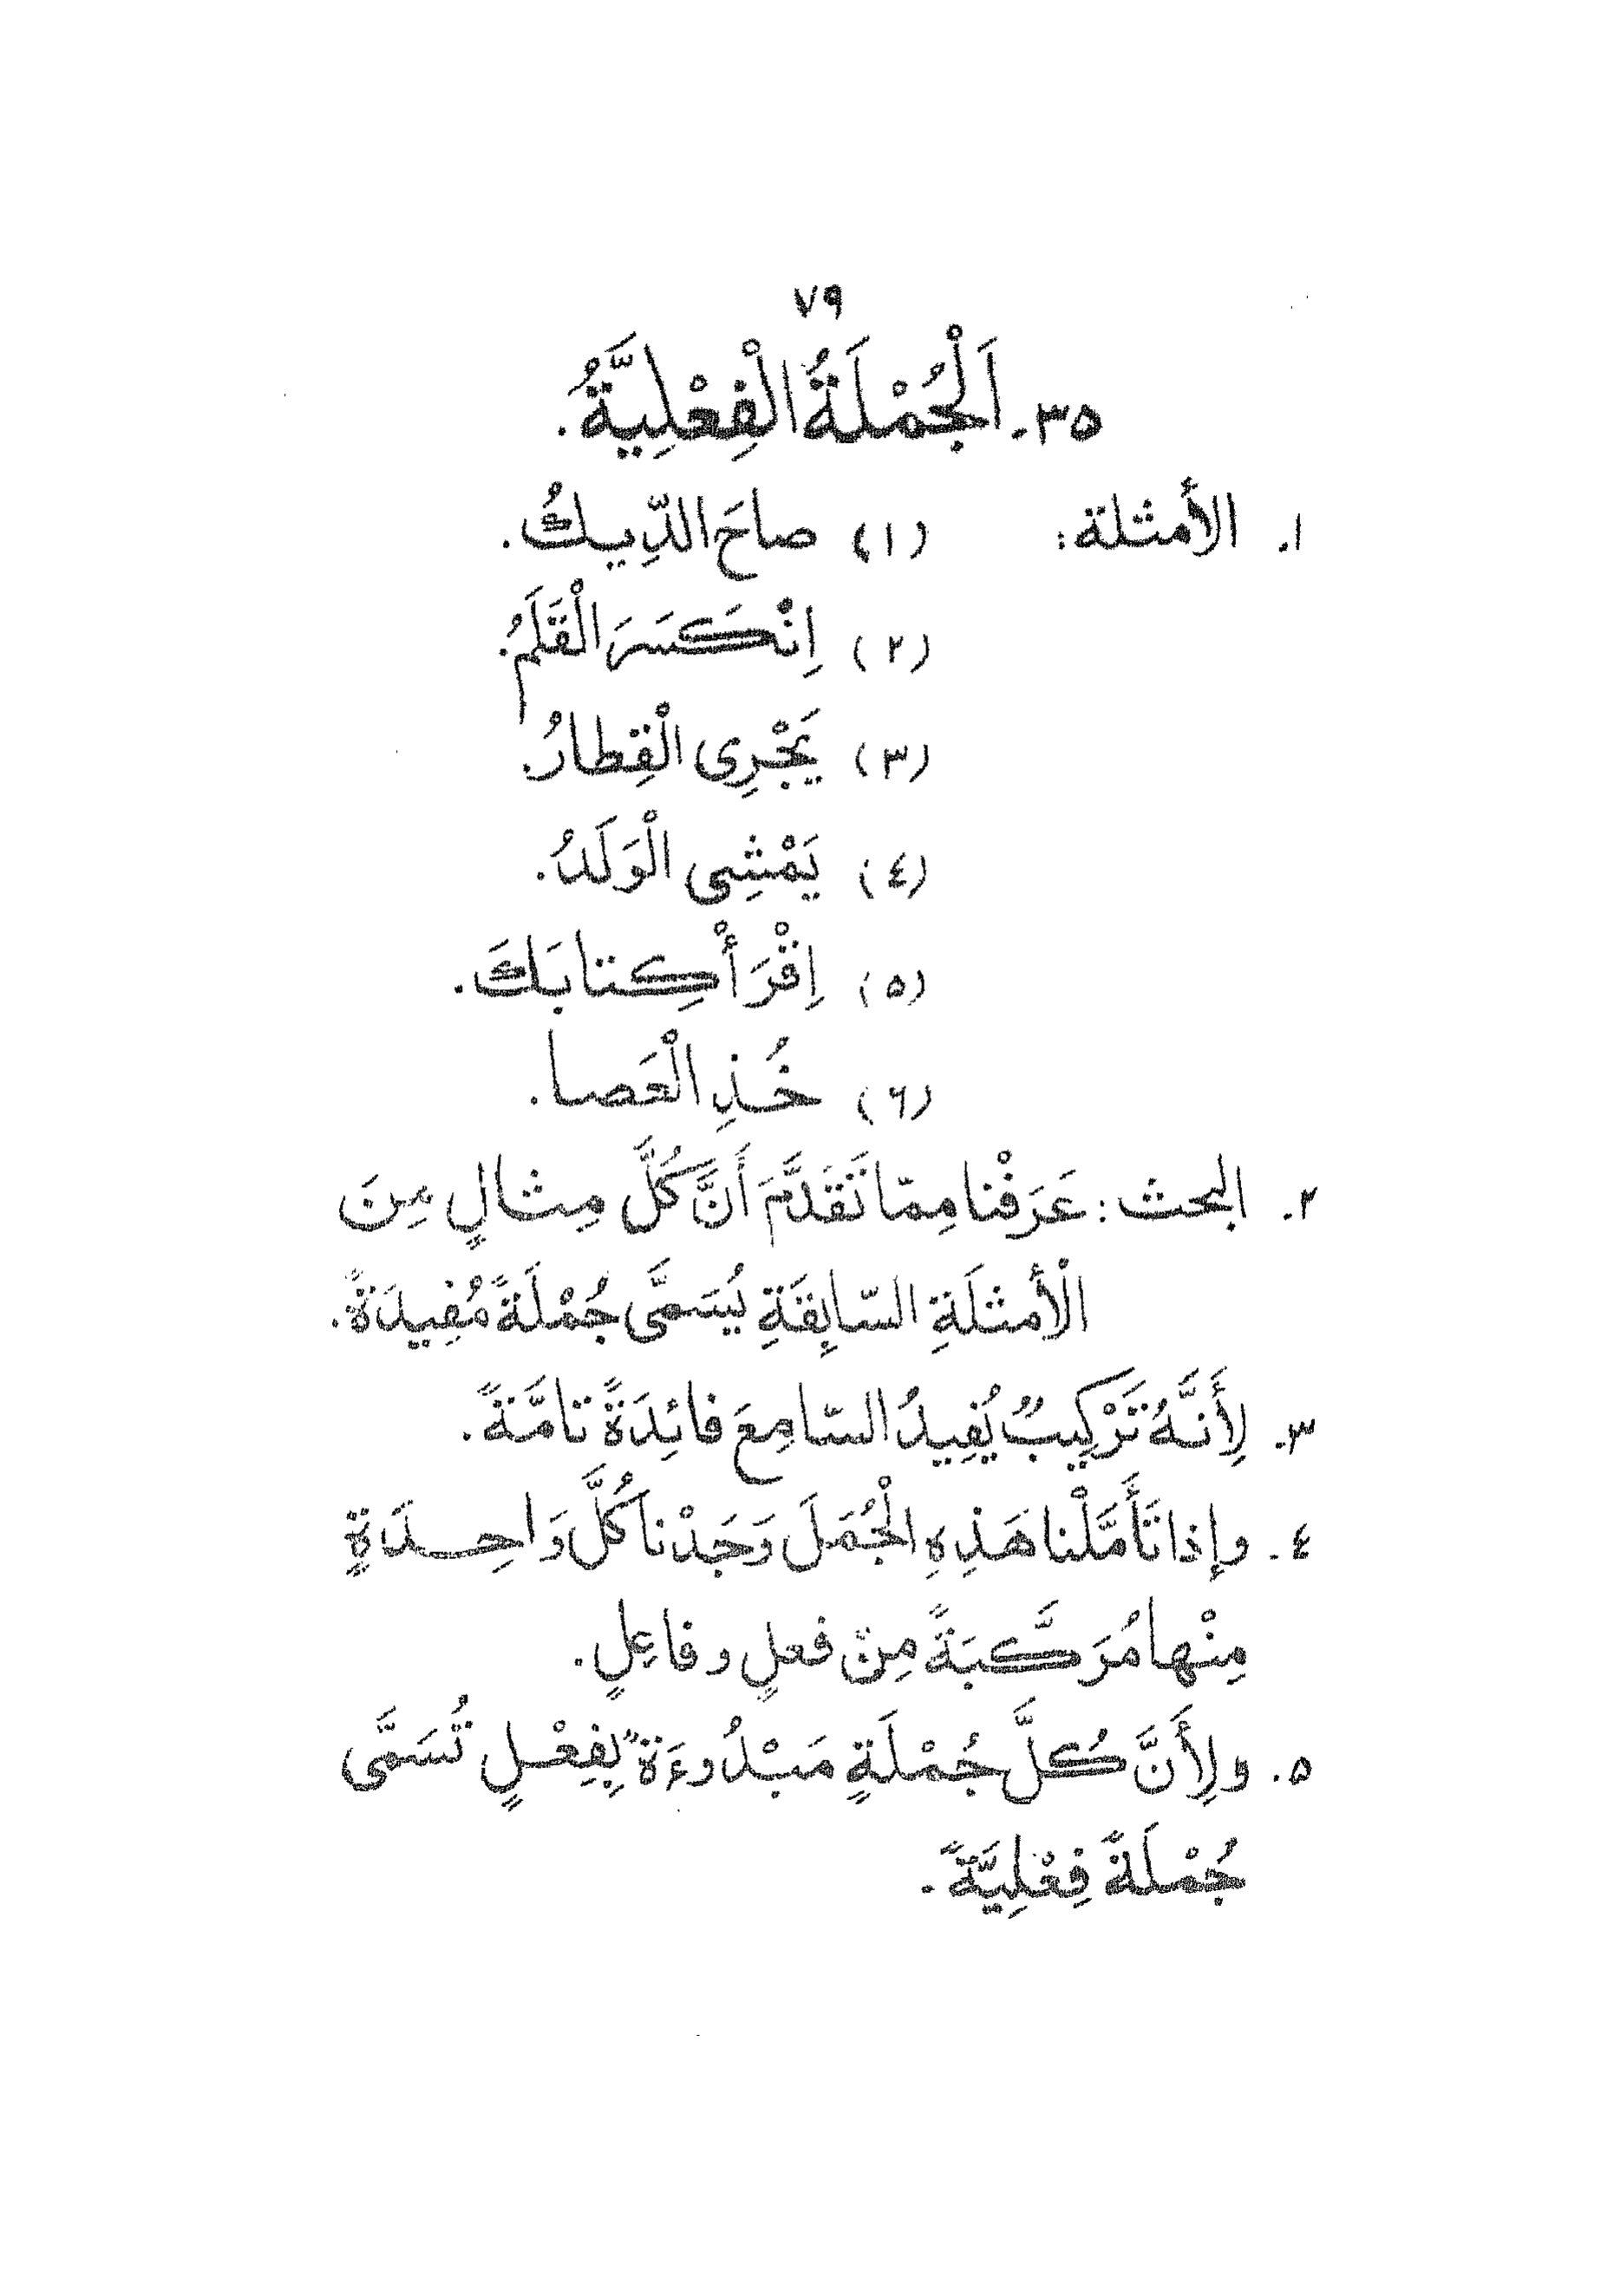 ٧٩
٣٥. اَلْجُمْلَةُ الْفِعْلِيَّةُ.
١. الأمثلة: (١) صاحَ الدِّيكُ.
(٢) اِنْكَسَرَ الْقَلَمُ.
(٣) يَجْرِى الْقِطارُ.
(٤) يَمْشِى الْوَلَدُ.
(٥) اِقْرَأْ كِتابَكَ.
(٦) خُذِ الْعَصا.
٢. البحث: عَرَفْنا مِمّا تَقَدَّمَ أَنَّ كُلَّ مِثالٍ مِنَ
الْأَمثلَةِ السّابِقَةِ يُسَمَّى جُمْلَةً مُفِيدَةً.
٣. لِأَنَّهُ تَرْكِيبٌ يُفِيدُ السّامِعَ فائِدَةً تامَّةً.
٤. وإذا تَأَمَّلْنا هَذِهِ الْجُمَلَ وَجَدْنا كُلَّ وَاحِدَةٍ
مِنْها مُرَكَّبَةً مِنْ فعلٍ وفاعِلٍ.
٥. ولِأَنَّ كُلَّ جُمْلَةٍ مَبْدُوءَةٌ بِفِعْلٍ تُسَمَّى
جُمْلَةً فِعْلِيَّةً.